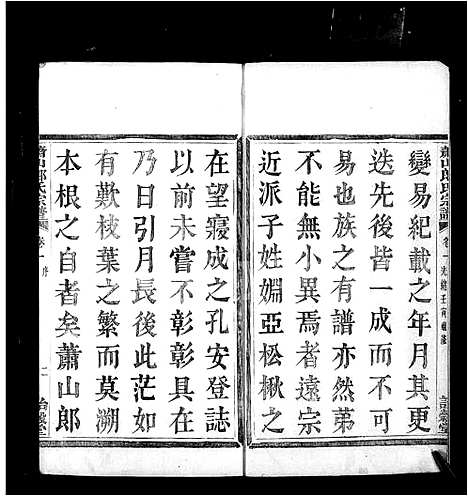 變易紀載之年月其更
迭先後皆一成而不可
易也族之有譜亦然第
不能無小異焉者遠宗
近派子姓姻亞松楸之
在望寢成之孔安登誌
以前未嘗不彰彰具在
乃日引月長後此茫如
有歎枝葉之繁而莫溯
本根之自者矣蕭山郎
蕭山郎氏宗譜
卷一
序
二